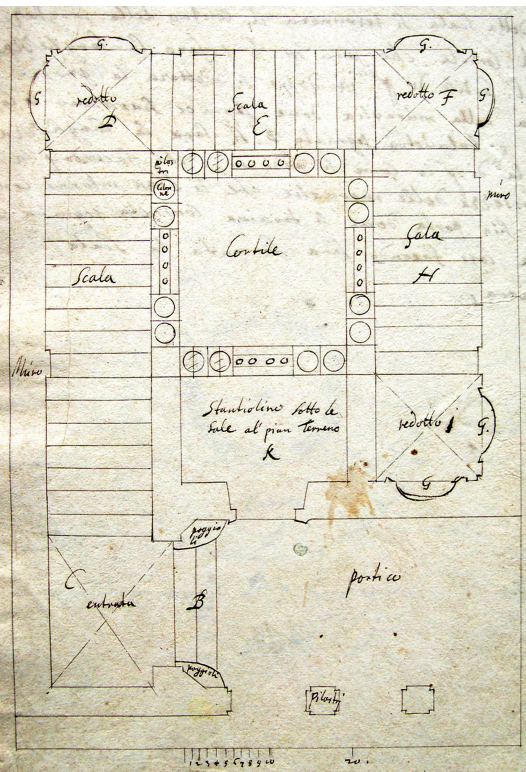 G.
G.
G
redotto
D
Scala
E
redotto F
G
pilas
tri
Colon
ne
muro
Cortile
Scala
Scala
H
Muro
Stantiolino sotto le
sale al' pian terreno
K
redotto I
G.
G
poggio
li
C
entrata
B
portico
poggioli
Pilastri
1 2 3 4 5 6 7 8 9 10
20.